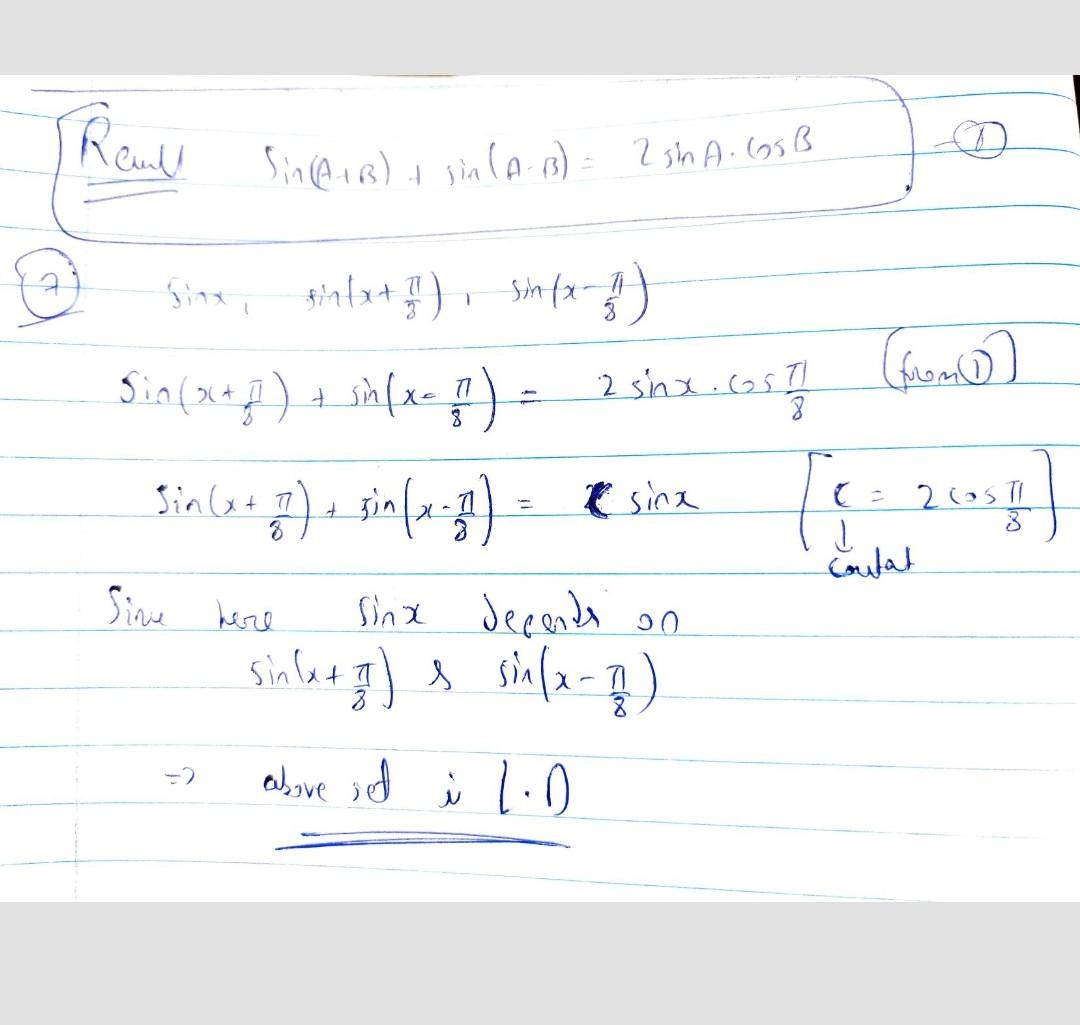 Recall Sin(A+B) + sin(A-B) = 2 sin A . Cos B - ①
⑦ Sinx, sin(x+π/8), sin(x-π/8)
Sin(x+π/8) + sin(x-π/8) = 2 sinx . cos π/8 (from ①)
Sin(x+π/8) + sin(x-π/8) = C sinx [C = 2 cos π/8]
↓
Since here Sinx depends on
sin(x+π/8) & sin(x-π/8)
=> above set is L.D